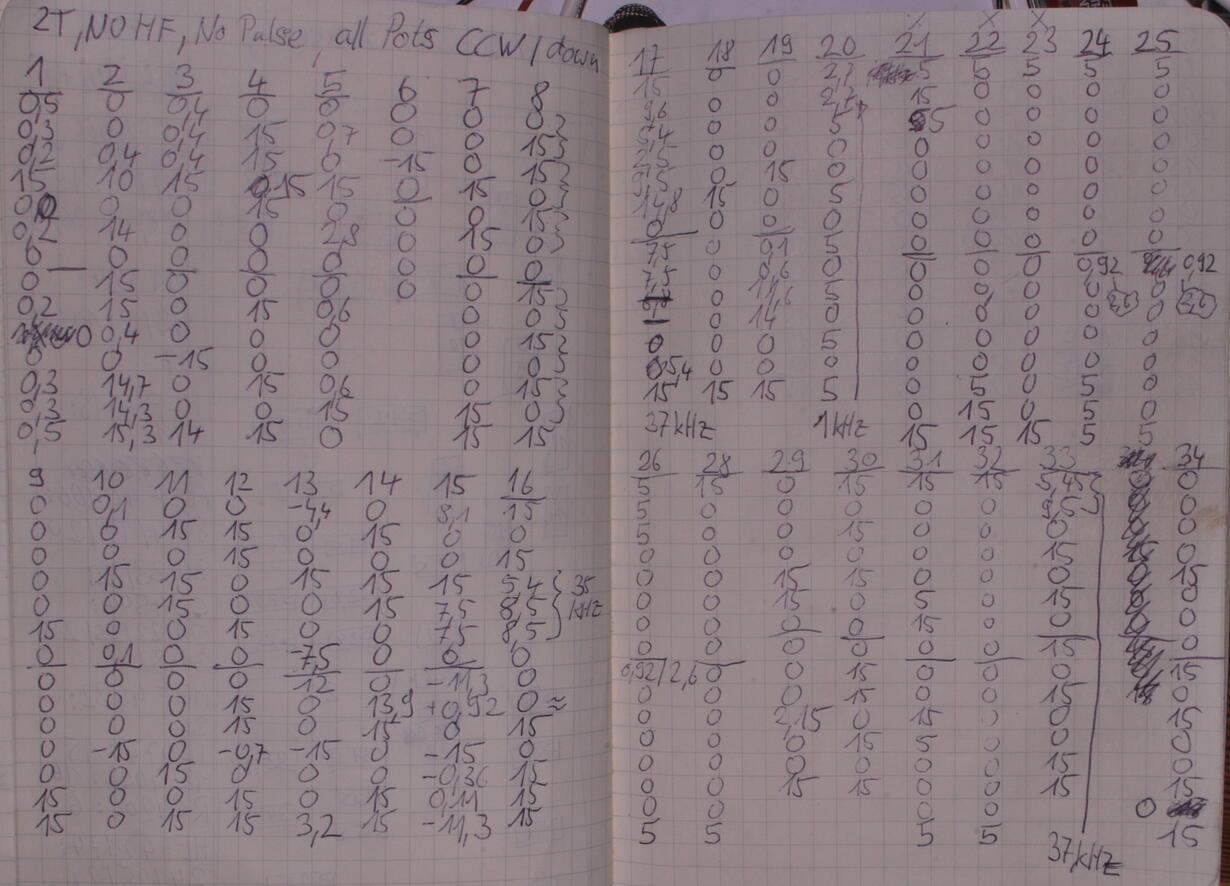 2T, NO HF, No Pulse, all Pots CCW / down
1 2 3 4 5 6 7 8
0,5 0 0,4 0 0 0 0 0
0,3 0 0,4 15 0,7 0 0 15
0,2 0,4 0,4 15 0 -15 0 15
15 10 15 0,15 15 0 15 0
0 0 0 15 0 0 0 15
0,2 14 0 0 2,8 0 15 0
0 0 0 0 0 0 0 0
0 15 0 0 0 0 0 15
0,2 15 0 15 0,6 0 0
0 0,4 0 0 0 0 15
0 0 -15 0 0 0 0
0,3 14,7 0 15 0,6 0 15
0,3 14,3 0 0 15 15 0
0,5 15,3 14 15 0 15 15
9 10 11 12 13 14 15 16
0 0,1 0 0 -4,4 0 8,1 15
0 0 15 15 0 15 0 0
0 0 0 15 0 0 0 15
0 15 15 0 15 15 15 5,4 35
0 0 15 0 0 15 7,5 8,5 kHz
15 0 0 15 0 0 7,5 8,5
0 0,1 0 0 -7,5 0 0 0
0 0 0 0 12 0 -11,3 0
0 0 0 15 0 13,9 +0,92 0 ≈
0 0 0 15 0 15 0 15
0 -15 0 -0,7 -15 0 -15 0
0 0 15 0 0 0 -0,36 15
15 0 0 15 0 15 0,11 15
15 0 15 15 3,2 15 -11,3 15
17 18 19 20 21 22 23 24 25
15 0 0 2,7 5 5 5 5 5
9,6 0 0 2,7 15 0 0 0 0
5,4 0 0 5 5 0 0 0 0
2,5 0 0 0 0 0 0 0 0
5,5 0 15 0 0 0 0 0 0
14,8 15 0 5 0 0 0 0 0
0 0 0 0 0 0 0 0 0
7,5 0 0,1 5 0 0 0 0 0
7,5 0 0,6 0 0 0 0 0,92 0,92
0 11,6 5 0 0 0 0 2,6 0 2,6
0 14 0 0 0 0 0 0
0 0 0 5 0 0 0 0 0
5,4 0 0 0 0 0 0 0 0
15 15 15 5 0 5 0 5 0
37 kHz 1 kHz 0 15 0 5 0
15 15 15 5 5
26 28 29 30 31 32 33 34
5 15 0 15 15 15 5,45 0
5 0 0 0 0 0 9,5 0
5 0 0 15 0 0 0 0
0 0 0 0 0 0 15 0
0 0 15 15 0 0 0 15
0 0 15 0 5 0 15 0
0 0 0 0 15 0 0 0
0 0 0 0 0 0 15 0
0,92/2,6 0 0 15 0 0 0 15
0 0 0 15 0 0 15 0
0 0 2,15 0 15 0 0 15
0 0 0 15 5 0 15 0
0 0 0 0 0 0 15 0
0 0 15 15 0 0 15 15
0 0 0 0 0
5 5 5 5 37 kHz 15